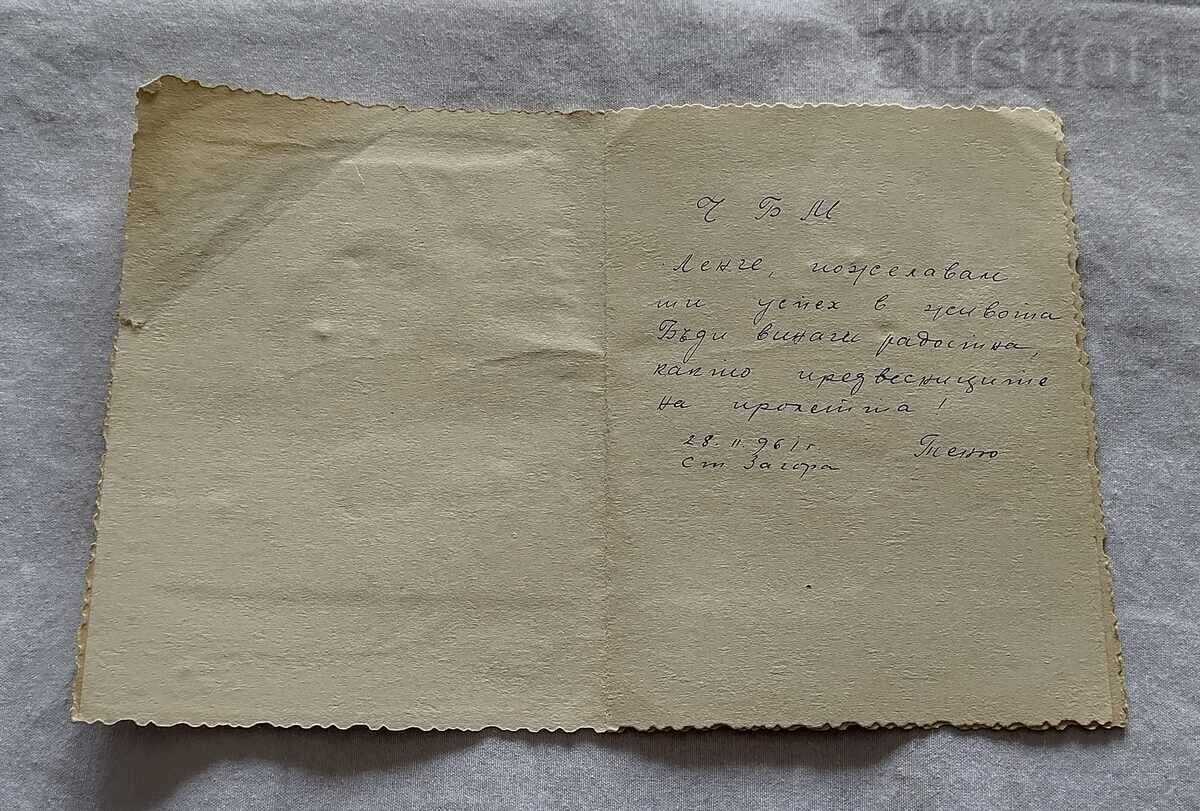 Ч Б М
Ленче, пожелавам
ти успех в живота
Бъди винаги радостна,
както предвесниците
на пролетта!
28. II. 961 г.
Ст Загора
Теню